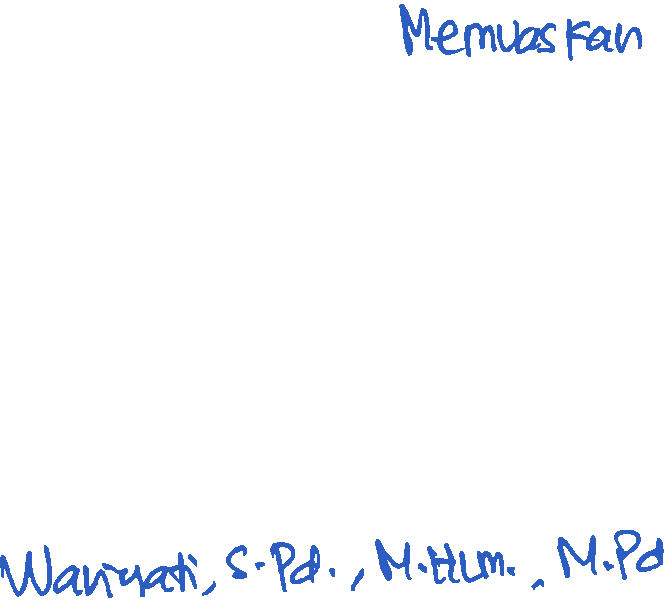 Memuaskan
Wariyati, S.Pd., M.Hum., M.Pd